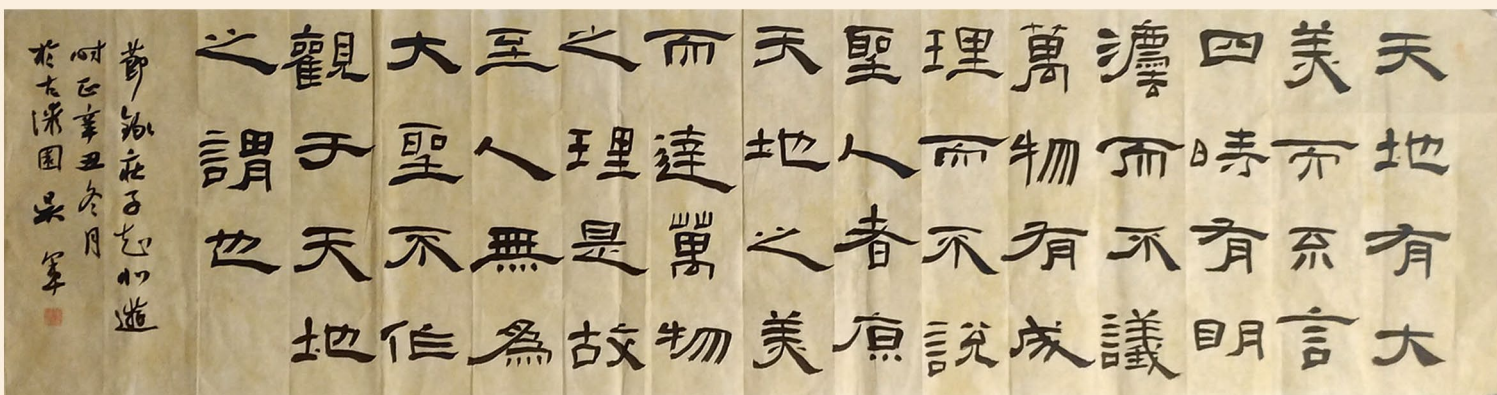 天地有大
美而不言
四時有明
灋而不議
萬物有成
理而不說
聖人者原
天地之美
而達萬物
之理是故
至人無為
大聖不作
觀于天地
之謂也
節錄莊子知北遊
時正辛丑冬月
於古園吳軍